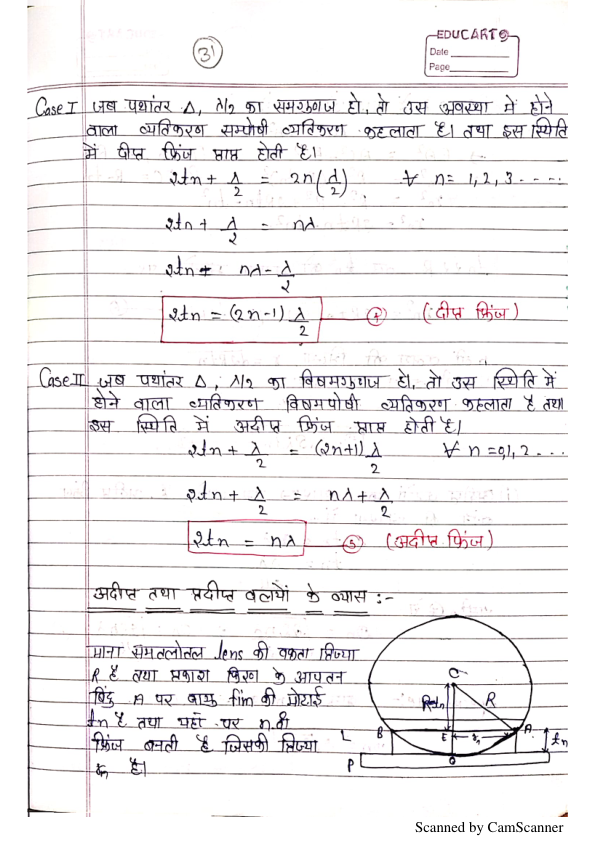 EDUCART
Date
Page
31
Case I जब पथांतर Δ, λ/2 का समगुणज हो, तो उस अवस्था में होने
वाला व्यतिकरण सम्पोषी व्यतिकरण कहलाता है। तथा इस स्थिति
में दीप्त फ्रिंज प्राप्त होती है।
2tn + λ/2 = 2n(λ/2) ∀ n = 1, 2, 3 -----
2tn + λ/2 = nλ
2tn = nλ - λ/2
2tn = (2n-1) λ/2 — 4 (दीप्त फ्रिंज)
Case II जब पथांतर Δ, λ/2 का विषमगुणज हो, तो उस स्थिति में
होने वाला व्यतिकरण विषमपोषी व्यतिकरण कहलाता है तथा
इस स्थिति में अदीप्त फ्रिंज प्राप्त होती है।
2tn + λ/2 = (2n+1) λ/2 ∀ n = 0,1, 2 ---
2tn + λ/2 = nλ + λ/2
2tn = nλ — 5 (अदीप्त फ्रिंज)
अदीप्त तथा प्रदीप्त वलयों के व्यास :-
माना समतलोतल lens की वक्रता त्रिज्या
R है तथा प्रकाश किरण के आपतन
बिंदु A पर वायु fim की मोटाई
tn है तथा यहाँ पर n वी
फ्रिंज बनती है जिसकी त्रिज्या
rn है।
C
R-tn
R
L
B
E
rn
A
tn
P
O
Scanned by CamScanner